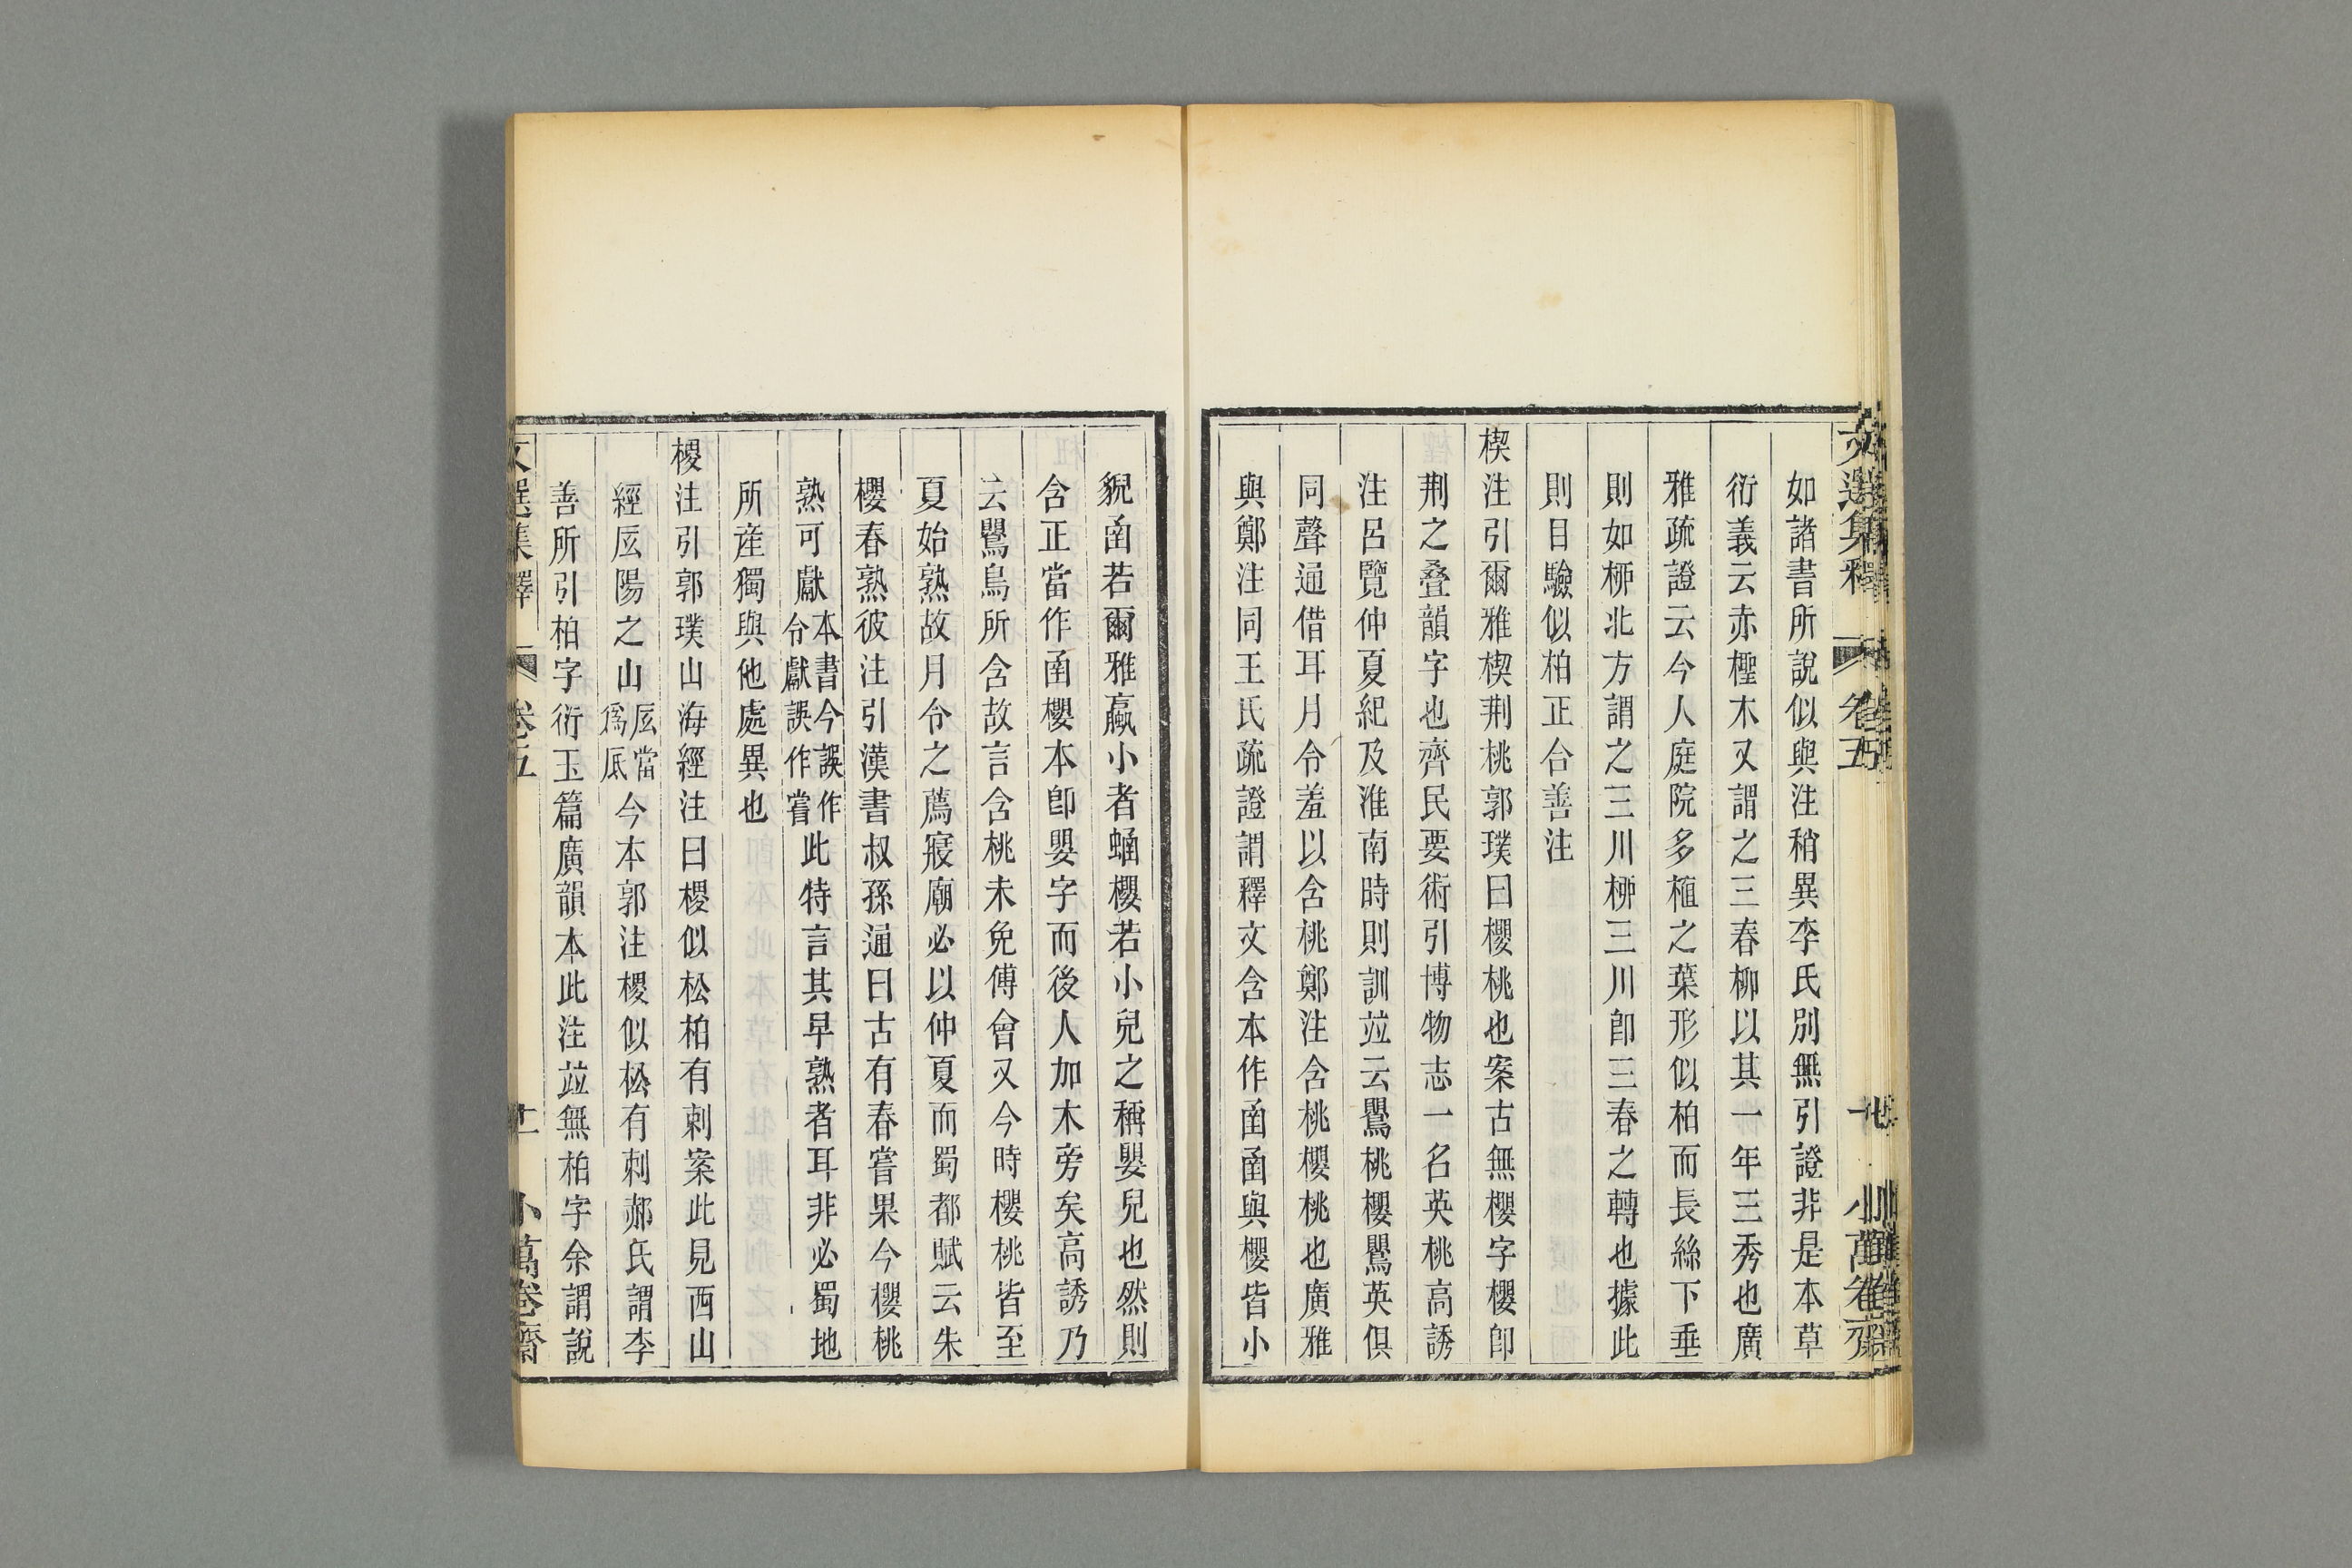 如諸書所說似與注稍異李氏別無引證非是本草
衍義云赤檉木又謂之三春柳以其一年三秀也廣
雅疏證云今人庭院多植之葉形似柏而長絲下垂
則如桺北方謂之三川桺三川卽三春之轉也據此
則目驗似柏正合善注
楔注引爾雅楔荆桃郭璞曰櫻桃也案古無櫻字櫻卽
荆之叠韻字也齊民要術引博物志一名英桃高誘
注呂覽仲夏紀及淮南時則訓竝云鸎桃櫻鸎英俱
同聲通借耳月令羞以含桃鄭注含桃櫻桃也廣雅
與鄭注同王氏疏證謂釋文含本作函函與櫻皆小
貌函若爾雅蠃小者蜬櫻若小兒之稱嬰兒也然則
含正當作函櫻本卽嬰字而後人加木旁矣高誘乃
云鸎鳥所含故言含桃未免傅會又今時櫻桃皆至
夏始熟故月令之薦寢廟必以仲夏而蜀都賦云朱
櫻春熟彼注引漢書叔孫通曰古有春嘗果今櫻桃
熟可獻本書今誤作令獻誤作嘗此特言其早熟者耳非必蜀地
所産獨與他處異也
㮨注引郭璞山海經注曰㮨似松柏有刺案此見西山
經厎陽之山厎當爲底今本郭注㮨似松有刺郝氏謂李
善所引柏字衍玉篇廣韻本此注竝無柏字余謂說
文選集釋 卷五 廿一 小萬卷齋